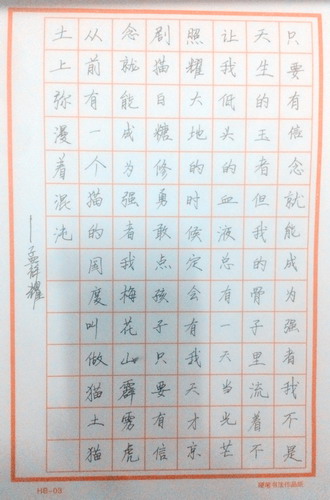 只要有信念就能成为强者我不是
天生的王者但我的骨子里流着不
让我低头的血液总有一天当光芒
照耀大地的时候定会有我天才京
剧猫白糖修勇敢点孩子只要有信
念就能成为强者我梅花山霹雳虎
从前有一个猫的国度叫做猫土猫
土上弥漫着混沌
——孟辉耀
HB-09
硬笔书法作品纸